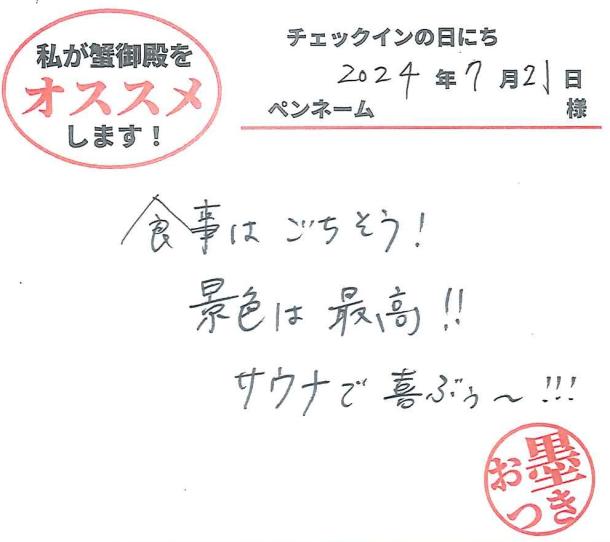 私が蟹御殿を
オススメ
します！
チェックインの日にち
2024年7月21日
ペンネーム 様
食事は ごちそう！
景色は 最高!!
サウナで 喜ぶぅ〜!!!
お墨
つき